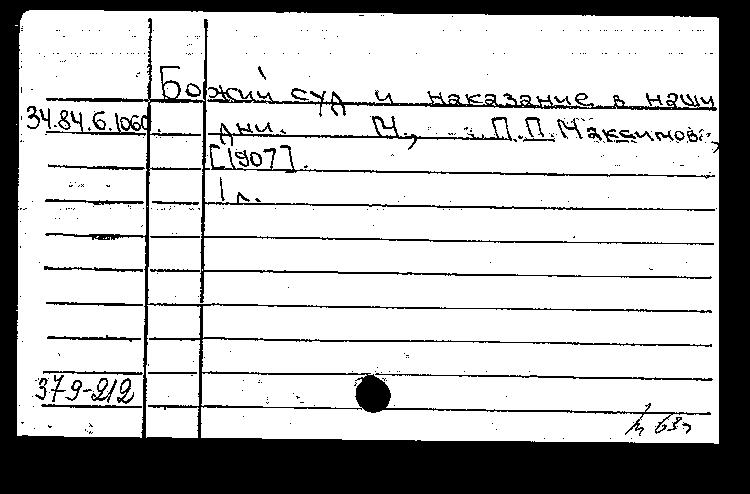 Божий суд и наказание в наши
34.84.6.1060. дни. М., П.П. Максимов,
[1907].
1 л.
379-212